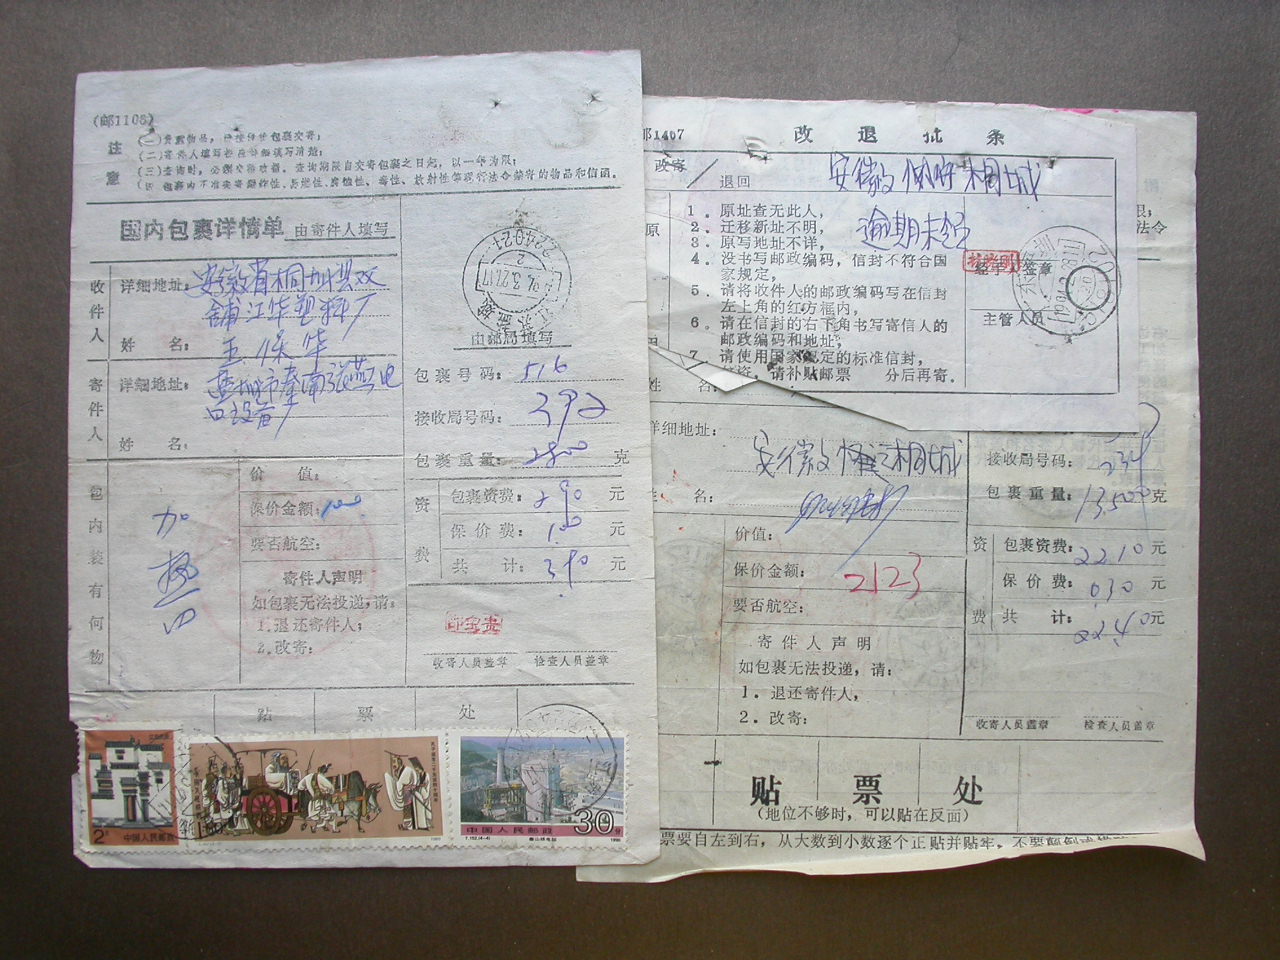 (邮1108)
注意
(一)贵重物品,应按保价包裹交寄;
(二)寄件人填写栏应详细填写清楚;
(三)查询时,必须交验收据。查询期限自交寄包裹之日起,以一年为限;
(四)包裹内不准夹寄爆炸性、易燃性、腐蚀性、毒性、放射性等现行法令禁寄的物品和信函。
国内包裹详情单 由寄件人填写
收件人
详细地址:安徽省桐城县双
铺江华塑料厂
姓 名: 王保华
寄件人
详细地址:
姓 名:
由邮局填写
包裹号码: 516
接收局号码: 392
包裹重量: 2800 克
资费
包裹资费: 2.90 元
保价费: 1.00 元
共 计: 3.90 元
包内装有何物
加热
价 值:
保价金额: 100
要否航空:
寄件人声明
如包裹无法投递,请:
1.退还寄件人;
2.改寄:
收寄人员盖章 检查人员盖章
贴 票 处
2分 中国人民邮政
1.60
中国人民邮政 30分
T.152.(4-4) 1990
邮1407 改退批条
改寄
退回 安徽 桐城
1.原址查无此人,
2.迁移新址不明,
3.原写地址不详,
4.没书写邮政编码,信封不符合国
家规定,
5.请将收件人的邮政编码写在信封
左上角的红方框内,
6.请在信封的右下角书写寄信人的
邮政编码和地址,
7.请使用国家规定的标准信封,
资,请补贴邮票 分后再寄。
原
逾期未领
经手人签章
主管人员
法令
姓 名:
详细地址: 安徽 桐城
姓 名:
接收局号码: 234
包裹重量: 13500克
资费
包裹资费: 22.10元
保价费: 0.30元
共 计: 22.40元
价值:
保价金额: 2123
要否航空:
寄件人声明
如包裹无法投递,请:
1.退还寄件人,
2.改寄:
收寄人员盖章 检查人员盖章
贴 票 处
(地位不够时,可以贴在反面)
票要自左到右,从大数到小数逐个正贴并贴牢,不要